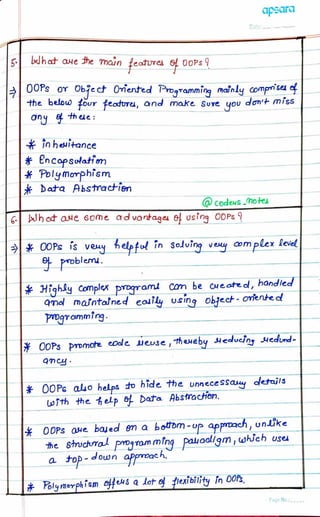 apsara
Date:
5. What are the main features of OOPs?
⇒ OOPs or Object Oriented Programming mainly comprises of
the below four features, and make sure you don't miss
any of these:
* Inheritance
* Encapsulation
* Polymorphism
* Data Abstraction
@codeus_notes
6. What are some advantages of using OOPs?
⇒ * OOPs is very helpful in solving very complex level
of problems.
* Highly complex programs can be created, handled
and maintained easily using object-oriented
programming.
* OOPs promote code reuse, thereby reducing redund-
ancy.
* OOPs also helps to hide the unnecessary details
with the help of Data Abstraction.
* OOPs are based on a bottom-up approach, unlike
the structural programming paradigm, which uses
a top-down approach.
* Polymorphism offers a lot of flexibility in OOPs.
Page No.: